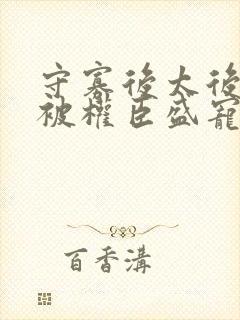 守寡後太後
被權臣盛寵
百香溝